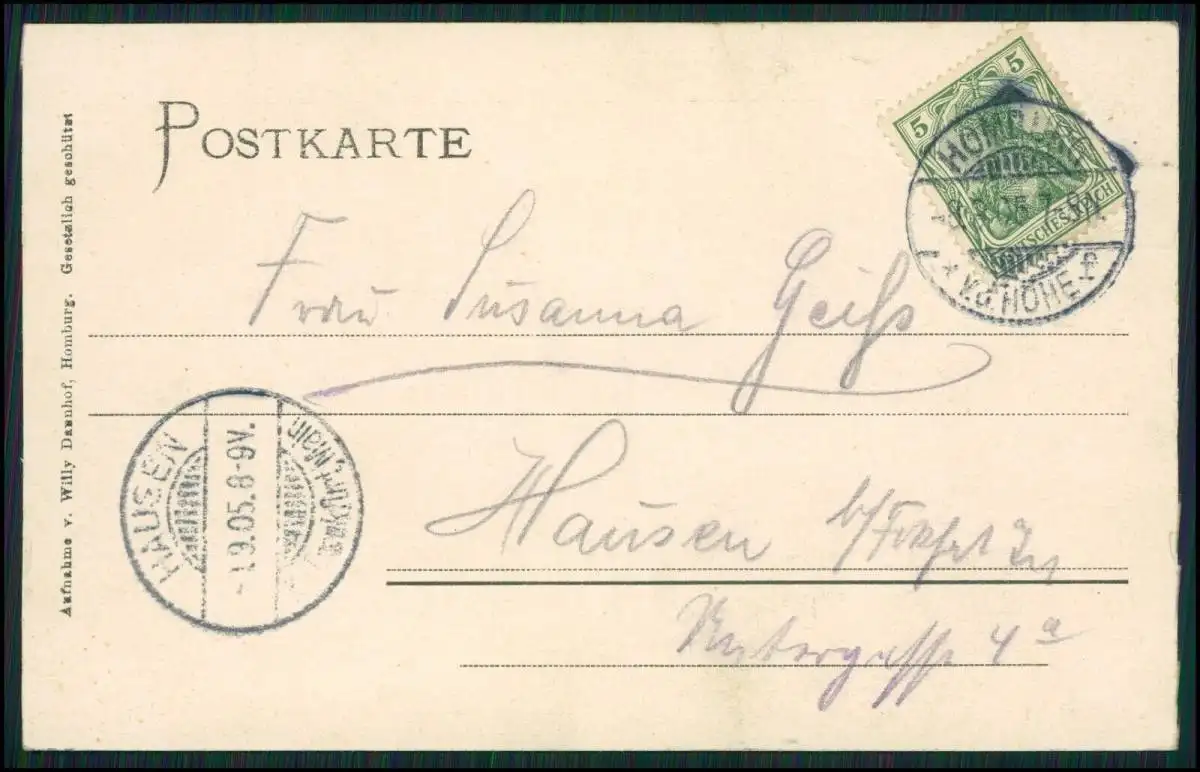 POSTKARTE
5 5
DEUTSCHES REICH
HOMBURG
V.D.HÖHE f
Frau Susanna Geiß
Hausen b/Frkfrt
4a
HAUSEN
-1.9.05.8-9V.
Aufnahme v. Willy Dannhof, Homburg. Gesetzlich geschützt